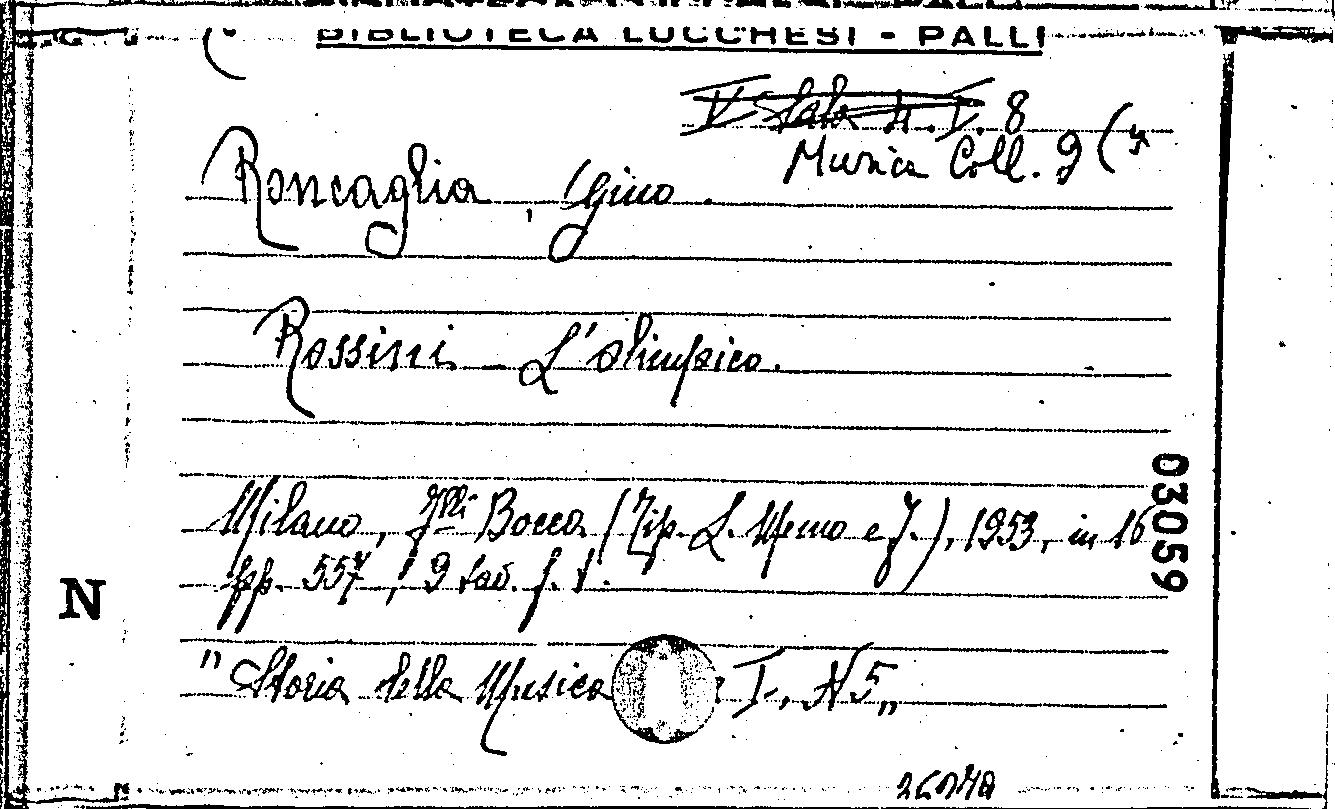 BIBLIOTECA LUCCHESI - PALLI
V Sala 4. I. 8
Musica Coll. 9 (5
Roncaglia, Gino.
Rossini L'olimpico.
Milano, F.lli Bocca (Tip. L. Memo e F.), 1953, in 16
pp. 557, 9 tav. f. t.
"Storia della Musica I, N 5"
03059
N